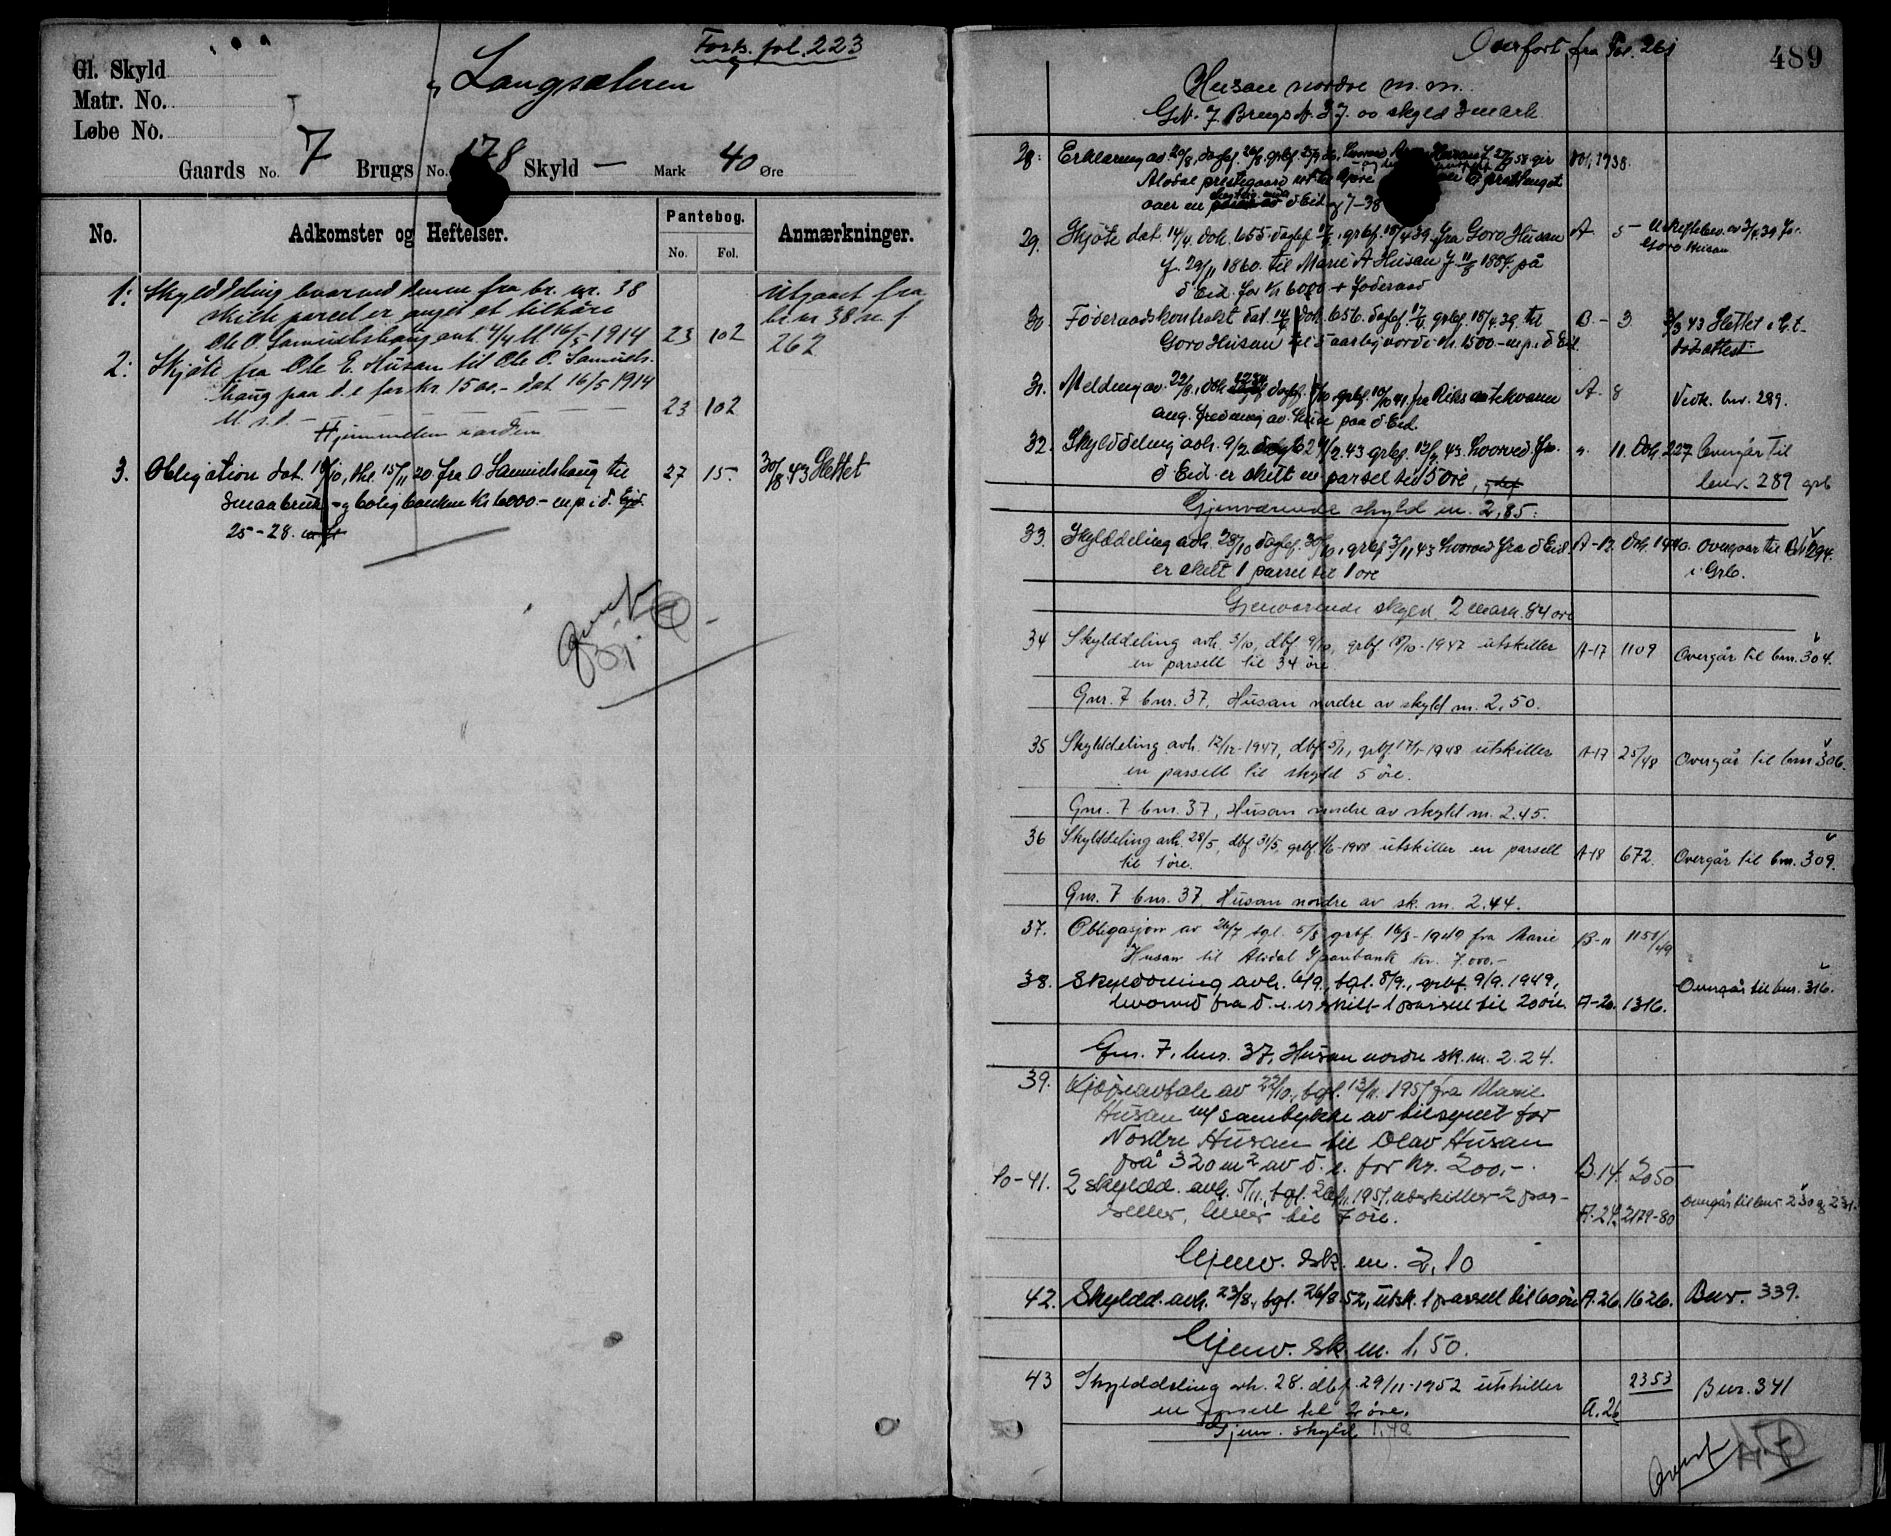 Forts. fol. 223
Gl. Skyld
Matr. No.
Løbe No.
Langsæteren
Gaards No. 7 Brugs No. 178 Skyld — Mark 40 Øre
No.
Adkomster og Heftelser.
Pantebog.
No. Fol.
Anmærkninger.
1: Skylddeling hvorved denne fra br. nr. 38
skilte parcel er angit at tilhøre
Ole O. Samuelshaug avh. 4/4 tl. 16/5 1914 23 102
Utgaaet fra
br. nr 38 se f
262
2: Skjøte fra Ole E. Husan til Ole O. Samuels-
haug paa d. e for kr. 1500,- dat 16/5 1914
tl. s.d. — 23 102
Hjemmelen i orden
3. Obligation dat. 10/10, thl. 15/11 20 fra O Samuelshaug til 27 15. 30/8 43 Slettet
Smaabruk - og boligbanken Kr 6000.- m.p. i d. Eid.
25-28.
Overf
Overført fra Fol. 261
489
Husan nordre m. m.
Gr. 7 Brugs No. 37. av skyld 3 mark
28: Erklæring av 20/8, dagbf. 26/8 grbf. 27/8 Dok. 1938.
Alvdal prestegaard
over en d Eid og 7-38
29. Skjøte dat. 14/4. dok. 655 dagbf. 17/4, grbf. 18/4 39, fra Goro Husan A- 5- Uskiftebev. av 3/4.39 for
Goro Husan
f. 29/11 1860. til Marie A Husan f. 11/8 1887. på
d Eid. for kr 6000 + føderaad
30. Føderaadskontrakt dat. 14/4 dok. 656. dagbf. 17/4. grbf. 18/4.39. til B.- 3 3/3 43 Slettet
Goro Husan til 5 aarlig værdi kr. 1500- m.p. i d Eid. dødsattest
31. Melding av. 22/9, dok dagbf. 8/10 grbf. 10/10 41. fra Riksantikvaren A- 8 Vedk. bnr. 289.
ang. fredning av huse paa d Eid.
32. Skylddeling avh. 9/2 grbf. 12/2. 43. hvorved fra " 11. Dok 227 Overgår til
d Eid er skilt en parsel til 15 øre, bnr. 289 grb
Gjenværende skyld m. 2,85.
33. Skylddeling avh. 28/10 dagbf. 30/10, grbf. 3/11 43 hvorved fra d Eid. A-12. Dok. 1440. overgaar til Br. 294.
er skilt 1 parsel til 1 øre i Grb.
Gjenværende skyld 2 mark 84 øre
34 Skylddeling avh. 3/10, dbf. 9/10, grbf. 18/10-1947 utskiller A-17 1109 Overgår til bnr. 304.
en parsell til 34 øre.
Gnr. 7 bnr. 37, Husan nordre av skyld m. 2,50.
35 Skylddeling avh. 12/12-1947, dbf. 5/1, grbf. 17/1-1948 utskiller A-17 25/48 Overgår til bnr 306.
en parsell til skyld 5 øre.
Gnr. 7 bnr. 37, Husan nordre av skyld m. 2.45.
36 Skylddeling avh. 28/5, dbf 31/5, grbf. 1/6-1948 utskiller en parsell A-18 672. Overgår til bnr. 309.
til 1 øre.
Gnr. 7 bnr. 37, Husan nordre av sk. m. 2.44.
37. Obligasjon av 26/7 tgl. 5/8 grbf. 16/8-1949 fra Marie B-11 1151/49
Husan til Alvdal Sparebank kr. 7.000,-
38. Skylddeling avh. 6/9., tgl. 8/9., grbf. 9/9. 1949, Overgår til bnr. 316.
hvorved fra d. e. er skilt 1 parsell til 20 øre. A-20. 1316.
Gnr. 7, bnr. 37, Husan nordre sk. m. 2.24.
39. Kjøpeavtale av 22/10., tgl. 13/11. 1951 fra Marie
Husan m/ samtykke av tilsynet for
Nordre Husan til Olav Husan
på 320 m² av d. e. for kr. 200,-. B.14. 2050
40-41. 2 skyldd. avh. 5/11., tgl. 1951, utskiller 2 par- overgår til bnr.
seller, hver til 7 øre. A.24. 2179-80
Gjenv. sk. m. 2,10
42. Skyldd. avh. 23/8., tgl. 26/8 52, utsk. 1 parsell til 60 øre A.26. 1626. Bnr. 339.
Gjenv. sk. m. 1,50.
43 Skylddeling avh. 28. dbf. 29/11-1952 utskiller 2353 Bnr. 341
en parsell til 2 øre. A.26
Gjenv. skyld 1,48
Overf